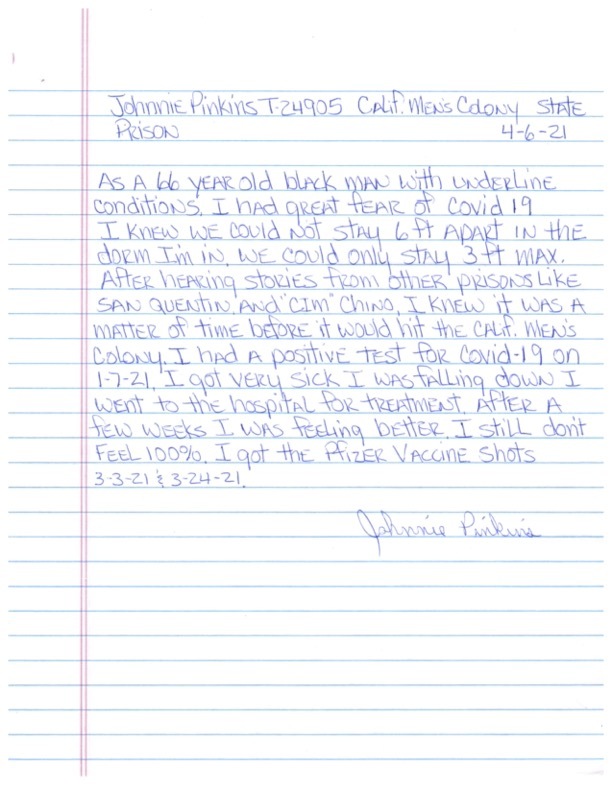 Johnnie Pinkins T-24905 Calif. Men's Colony State
Prison 4-6-21
As a 66 year old black man with underline
conditions. I had great fear of Covid 19
I knew we could not stay 6 ft apart in the
dorm I'm in. We could only stay 3 ft max.
After hearing stories from other prisons like
San Quentin, and "CIM" Chino, I knew it was a
matter of time before it would hit the Calif. Men's
Colony. I had a positive test for Covid-19 on
1-7-21. I got very sick I was falling down I
went to the hospital for treatment. After a
few weeks I was feeling better. I still don't
feel 100%. I got the Pfizer Vaccine shots
3-3-21 & 3-24-21.
Johnnie Pinkins